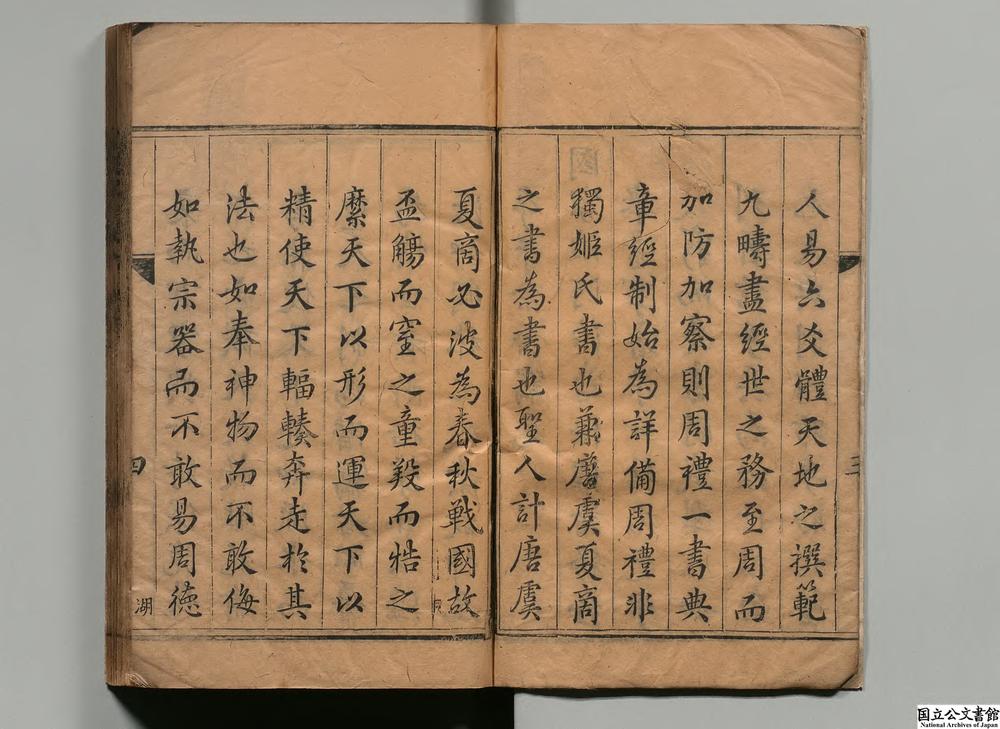 人易六爻體天地之撰範
九疇盡經世之務至周而
加防加察則周禮一書典
章經制始為詳備周禮非
獨姬氏書也兼唐虞夏商
之書為書也聖人計唐虞
三
夏商必波為春秋戰國故
盃觴而窒之童羖而牿之
縻天下以形而運天下以
精使天下輻輳奔走於其
法也如奉神物而不敢侮
如執宗器而不敢易周德
四
湖
国立公文書館
National Archives of Japan